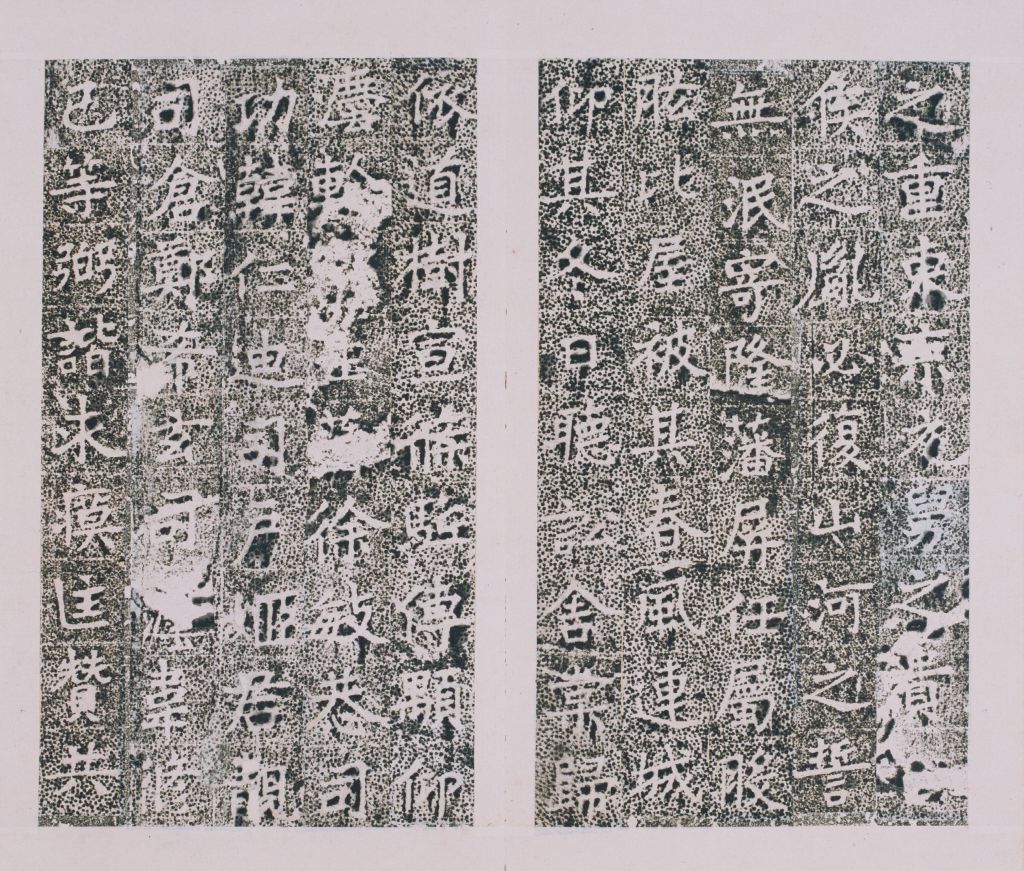 之重東京光舅之
侯之胤必復山河之誓
無泯寄隆藩屏任屬股
肱比屋被其春風連城
仰其冬日聽訟舍棠歸
依道樹宣條臨傳顯仰
塵軫徐敏恭司
功韓仁迪司戶姬君靚
司倉鄭希玄司韋
已等弼諧匡贊共